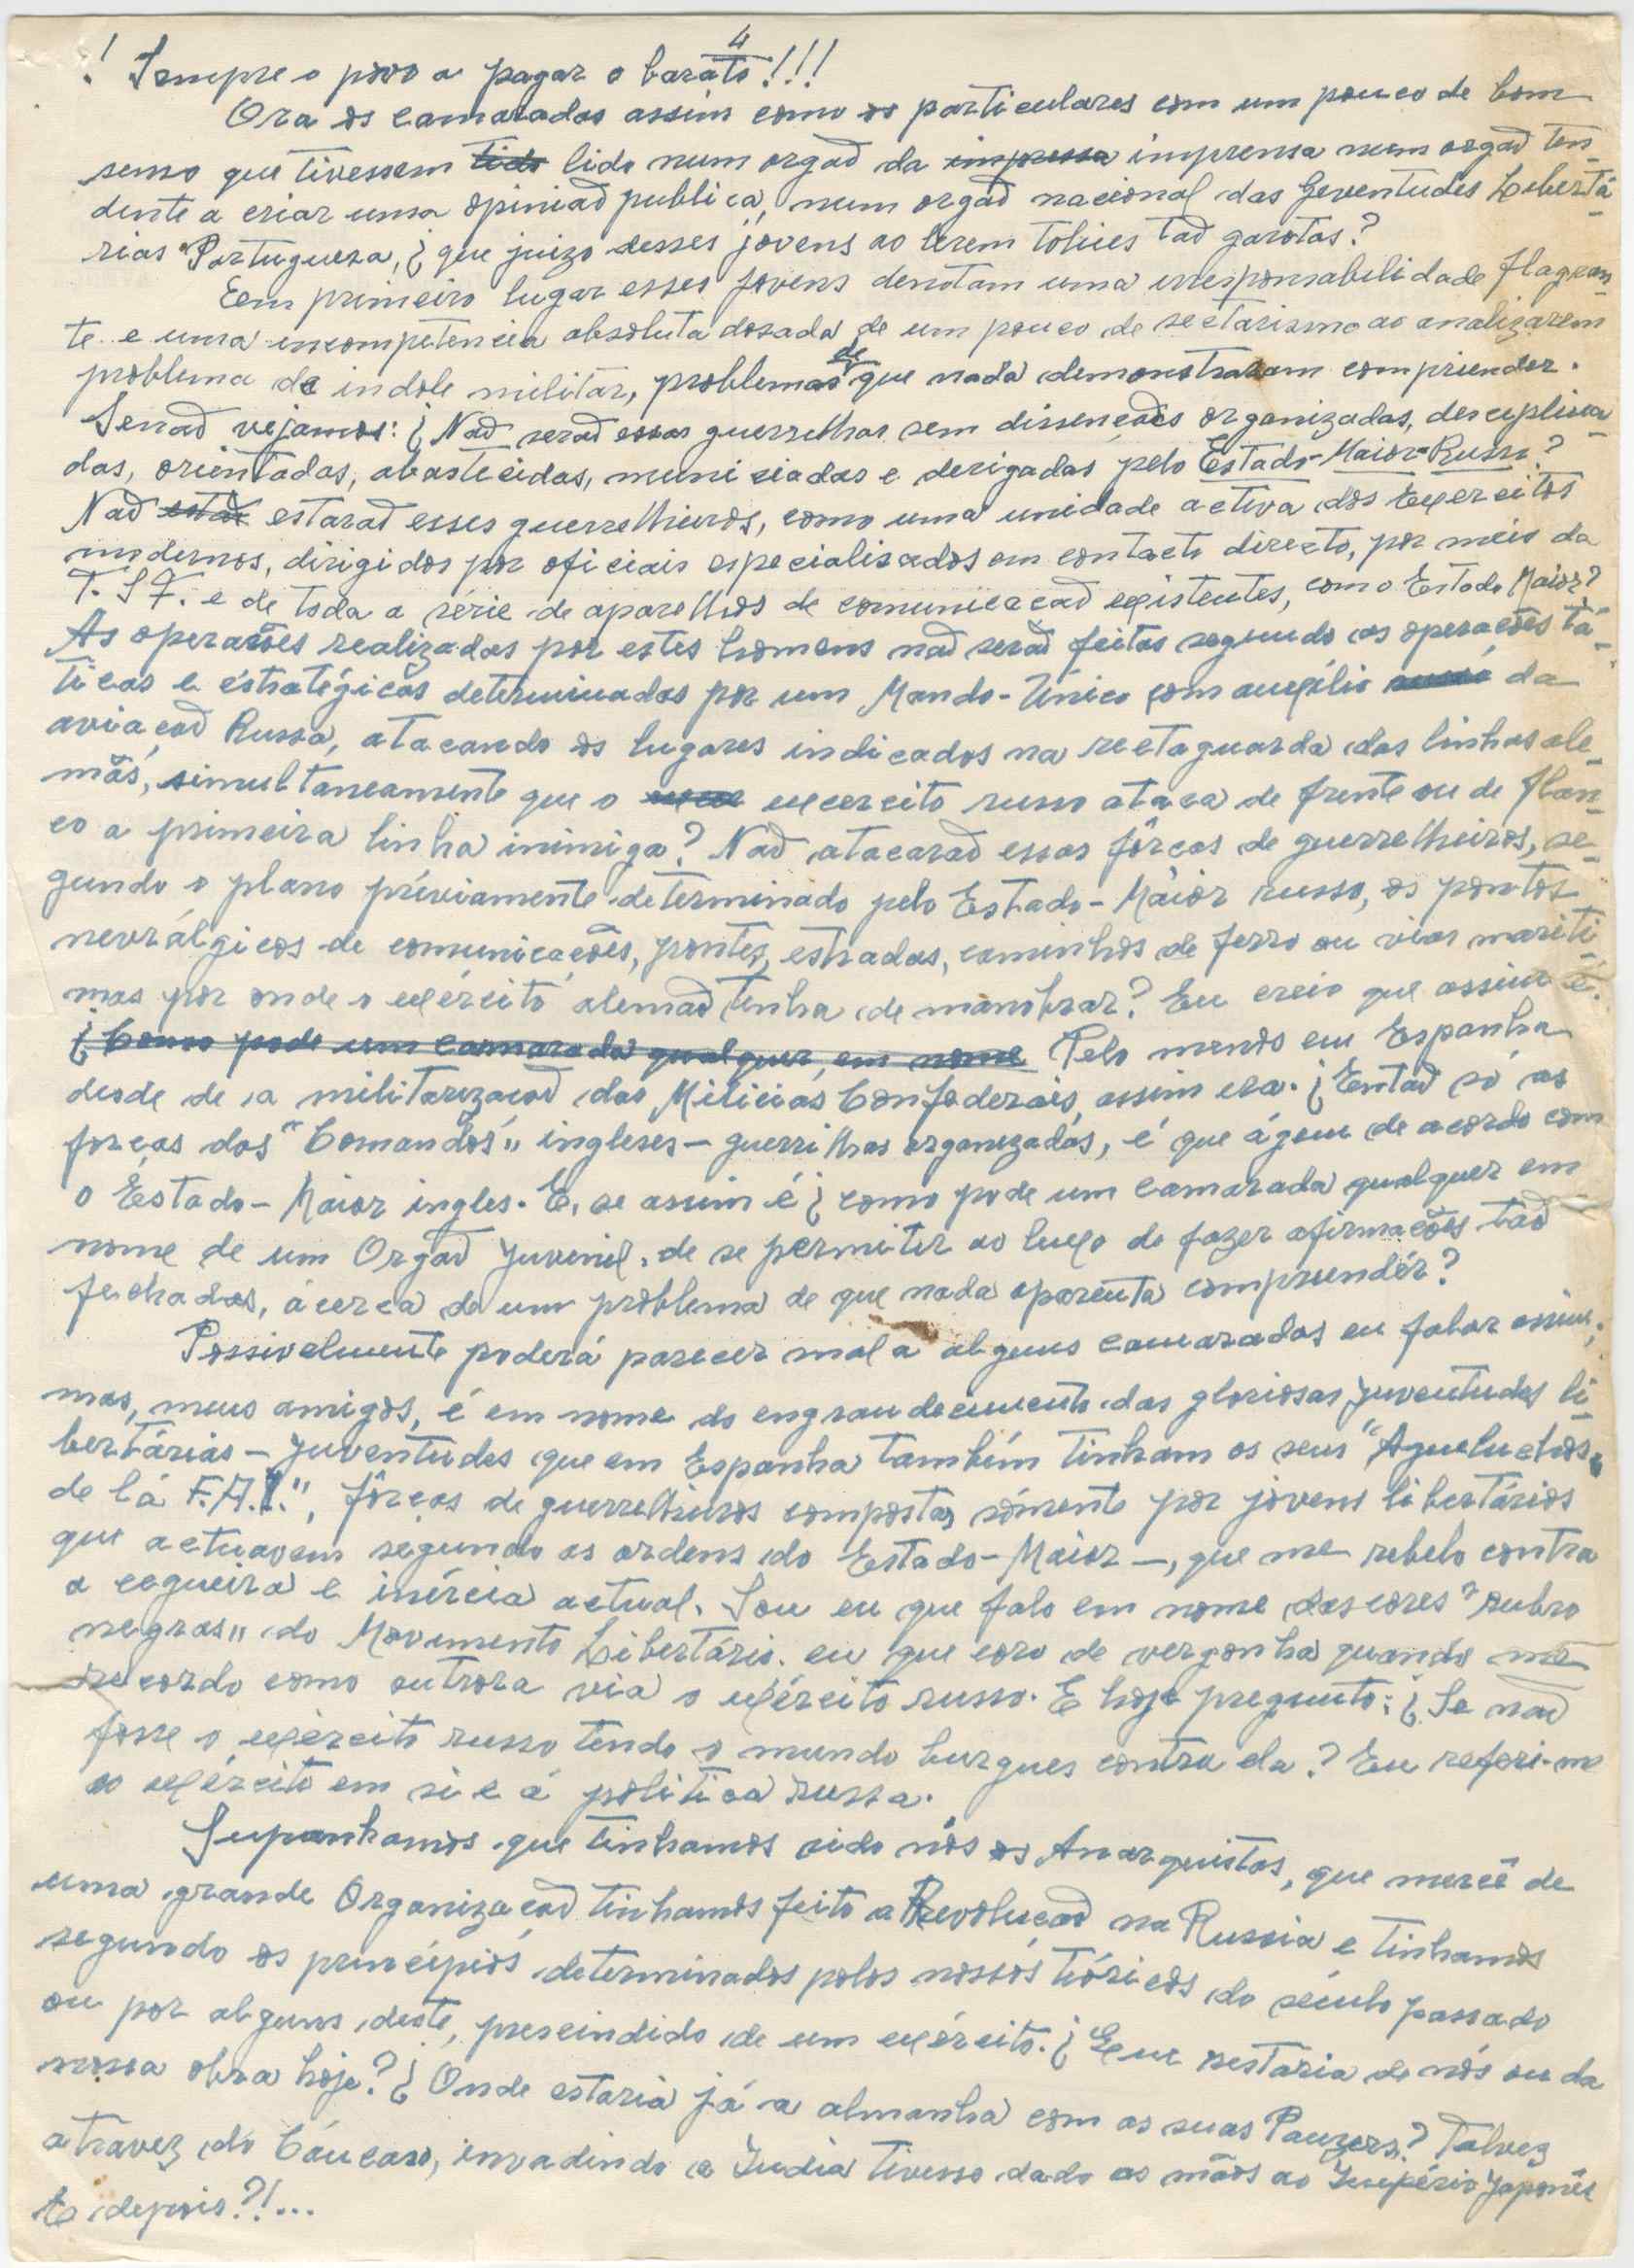 4
¡ Sempre o povo a pagar o barato!!!
Ora os camaradas assim como os particulares com um pouco de bom
senso que tivessem tido lido num orgaõ da impressa imprensa num orgaõ ten-
dente a criar uma opiniaõ publica, num orgaõ nacional das Geventudes Libertá-
rias Portuguesa, ¿que juizo desses jovens ao lerem tolices taõ garotas?
Em primeiro lugar esses jovens denotam uma irresponsabilidade flagran-
te e uma incompetencia absoluta dosada de um pouco de sectarismo ao analizarem
problema de indole militar, problemas de que nada demonstraram compriender.
Senaõ vejamos: ¿Naõ seraõ essas guerrelhas sem dissençoẽs organizadas, desciplina-
das, orientadas, abastecidas, municiadas e derigadas pelo Estado-Maior-Russo?
Naõ estaõ estaraõ esses guerrelheiros, como uma unidade activa dos Exercitos
modernos, dirigidos por oficiais especialisados em contacto directo, por meio da
T. S F. e de toda a série de aparelhos de comunicaçaõ existentes, com o Estado Maior?
As operações realizadas por estes homens naõ seraõ feitas segundo as operações tá-
ticas e éstratégicas determinadas por um Mando-Único com auxílio russo da
aviaçaõ Russa, atacando os lugares indicados na rectaguarda das linhas ale-
mãs, simultaneamente que o exercito russo ataca de frente ou de flan-
co a primeira linha inimiga? Naõ atacaraõ essas fôrças de guerrelheiros, se-
gundo o plano préviamente determinado pelo Estado-Maior russo, os pontos
nevrálgicos de comunicações, pontes, estradas, caminhos de ferro ou vias mariti-
mas por onde o exército alemaõ tenha de manobrar? Eu creio que assim é.
¿Como pode um camarada qualquer, em nome Pelo menos em Espanha
desde de a militarizaçaõ das Milicias Confederais, assim era. ¿Entaõ só as
forças dos "Comandos" ingleses - guerrilhas organizadas, é que ágem de acordo com
o Estado-Maior ingles. E, se assim é ¿como pode um camarada qualquer em
nome de um Orgaõ Juvenil, de se permitir ao luxo de fazer afirmações taõ
fechadas, ácerca de um problema de que nada aparenta compreendêr?
Possivelmente poderá parecer mal a alguns camaradas eu falar assim;
mas, meus amigos, é em nome do engrandecimento das gloriosas juventudes li-
bertárias - juventudes que em Espanha também tinham os seus "Agueluchos
de lá F.A.I.", fôrças de guerrelheiros compostas sómente por jovens libertários
que actuavam segundo as ordens do Estado-Maior -, que me rebelo contra
a cegueira e inércia actual. Sou eu que falo em nome das cores "rubro
negras" do Movimento Libertário. eu que coro de vergonha quando me
recordo como outrora via o exército russo. E hoje pregunto: ¿Se naõ
fosse o exército russo tendo o mundo burgues contra ela? Eu referi-me
ao exército em si e á politica russa.
Suponhamos que tinhamos sido nós os Anarquistas, que mercê de
uma grande Organizaçaõ tinhamos feito a Revoluçaõ na Russia e tinhamos
segundo os princípios determinados pelos nossos teóricos do século passado
ou por alguns deste, prescindido de um exército. ¿Que restaria de nós ou da
nossa obra hoje? ¿Onde estaria já a almanha com as suas Panzers? Talvez
atravez do Cáucaso, invadindo a India tivesse dado as mãos ao Império Japonês
e depois?!...